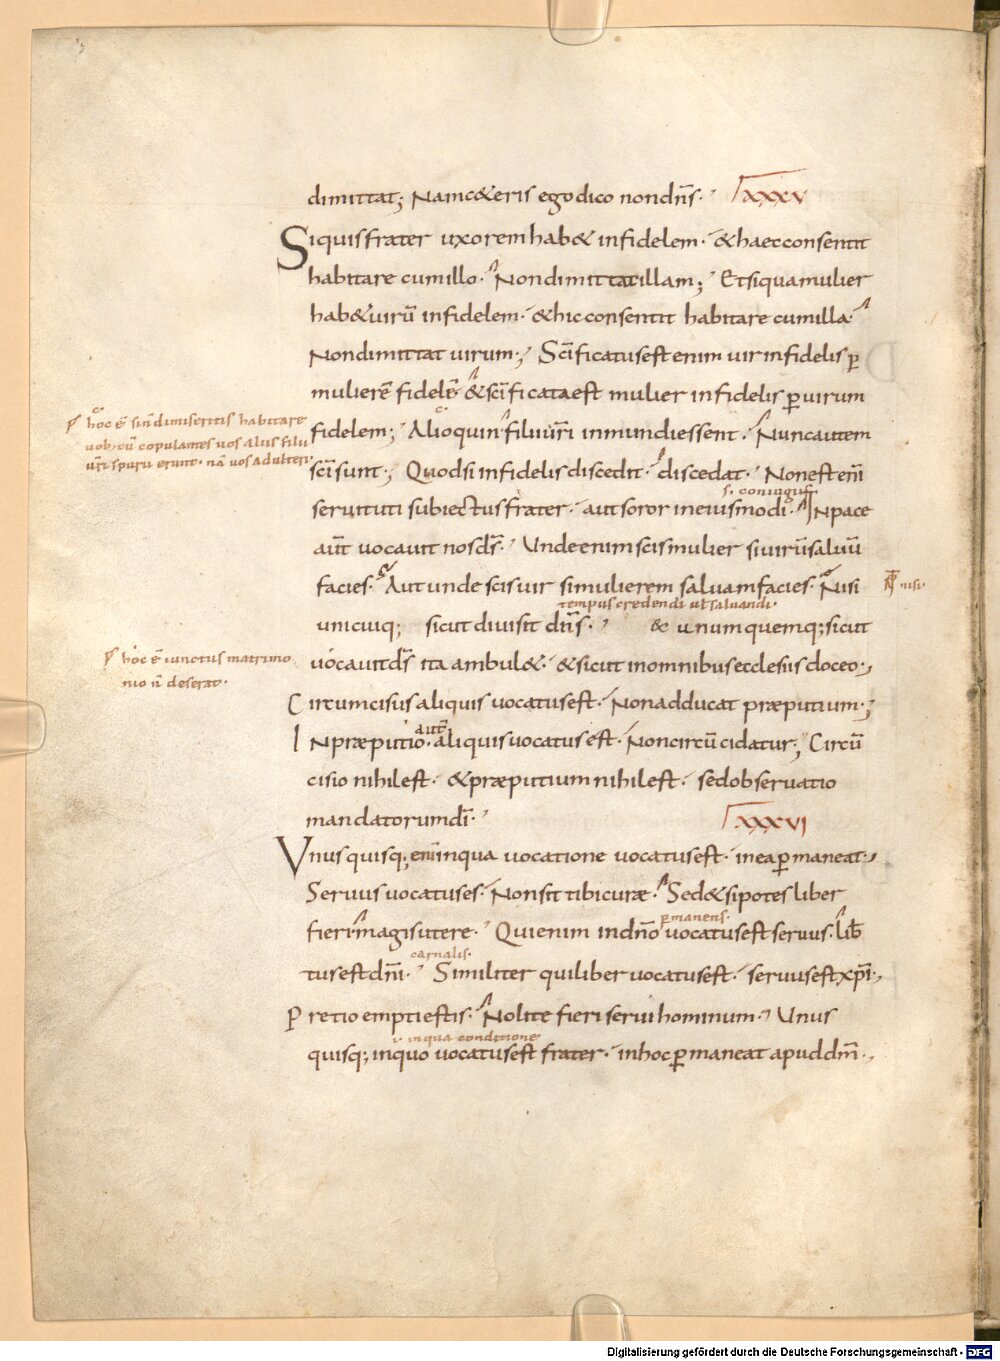 dimittat; Namc&eris ego dico non dn̄s· XXXV
Siquis frater uxorem hab& infidelem· & haec consentit
habitare cum illo· Non dimittat illam; Et siqua mulier
hab& uirū infidelem· & hic consentit habitare cum illa·
Non dimittat uirum; Sc̄ificatus est enim uir infidelis ꝑ
mulierē fidelē· & sc̄ificata est mulier infidelis ꝑ uirum
hoc ē si n̄ dimiseritis habitare
uob cū copulantes uos aliis filii
ur̄i spurii erunt· nā uos adulteri·
fidelem; Alioquin filii ur̄i inmundi essent· Nunc autem
sc̄i sunt; Quod si infidelis discedit· discedat· Non est enī
s. coniugii
seruituti subiectus frater· aut soror in eiusmodi· In pace
aūt uocauit nos ds̄· Unde enim scis mulier si uirū saluū
facies· Aut unde scis uir si mulierem saluam facies· Nisi
nisi·
tempus credendi ut saluandi·
unicuiq; sicut diuisit dn̄s· & unumquemq; sicut
uocauit ds̄ ita ambul&· & sicut in omnibus ecclesiis doceo·,
hoc ē iunctus matrimo
nio n̄ deserat·
Circumcisus aliquis uocatus est· Non adducat præputium·;
aut̄
In præputio· aliquis uocatus est· Non circūcidatur; Circū
cisio nihil est· & præputium nihil est· sed obseruatio
mandatorum dī· XXXVI
Vnusquisq; enim in qua uocatione uocatus est· in ea ꝑmaneat·,
Seruus uocatus es· Non sit tibi curæ· Sed & si potes liber
ꝑmanens·
fieri magis utere· Qui enim in dn̄o uocatus est seruus· lib̄
carnalis·
tus est dn̄i· Similiter qui liber uocatus est· seruus est xp̄i·,
Pretio empti estis· Nolite fieri serui hominum· Unus
in qua conditione
quisq; in quo uocatus est frater· in hoc ꝑmaneat apud dm̄·,
Digitalisierung gefördert durch die Deutsche Forschungsgemeinschaft - DFG